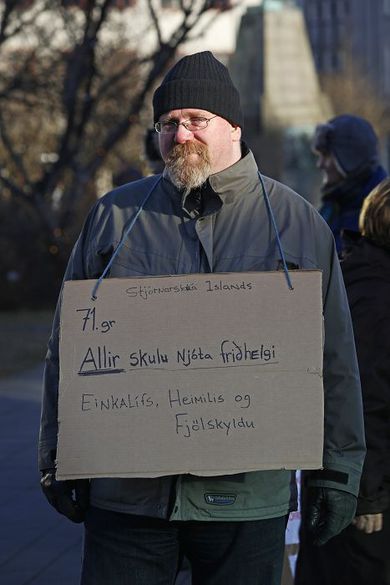 Stjórnarskrá Islands
71. gr
Allir skulu Njóta friðhElgi
EinkaLífs, Heimilis og
Fjölskyldu